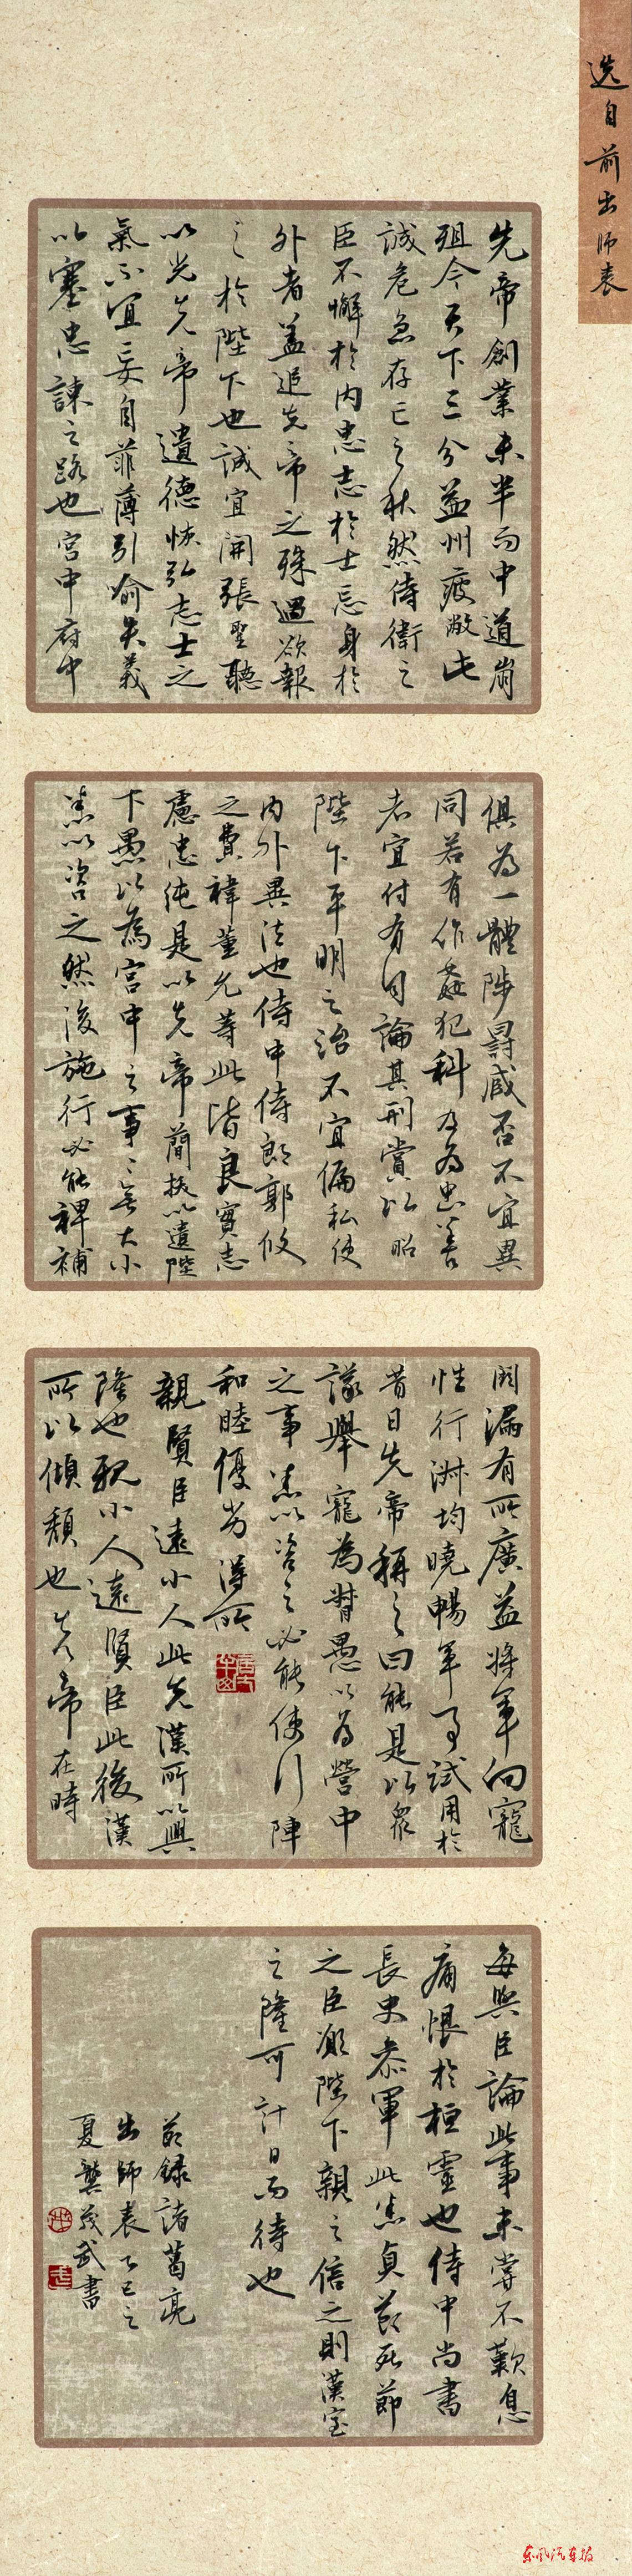 选自前出师表
先帝創業未半而中道崩
殂今天下三分益州疲敝此
誠危急存亡之秋然侍衛之
臣不懈於内忠志於士忘身於
外者蓋追先帝之殊遇欲報
之於陛下也誠宜開張聖聽
以光先帝遺德恢弘志士之
氣不宜妄自菲薄引喻失義
以塞忠諫之路也宮中府中
俱為一體陟罰臧否不宜異
同若有作姦犯科及為忠善
者宜付有司論其刑賞以昭
陛下平明之治不宜偏私使
内外異法也侍中侍郎郭攸
之費禕董允等此皆良實志
慮忠純是以先帝簡拔以遺陛
下愚以為宮中之事事無大小
悉以咨之然後施行必能裨補
闕漏有所廣益將軍向寵
性行淑均曉暢軍事試用於
昔日先帝稱之曰能是以眾
議舉寵為督愚以為營中
之事悉以咨之必能使行陣
和睦優劣得所
親賢臣遠小人此先漢所以興
隆也親小人遠賢臣此後漢
所以傾頹也先帝在時
每與臣論此事未嘗不歎息
痛恨於桓靈也侍中尚書
長史參軍此悉貞節死節
之臣願陛下親之信之則漢室
之隆可計日而待也
節錄諸葛亮
出師表乙巳之
夏龔茂武書
东风汽车报